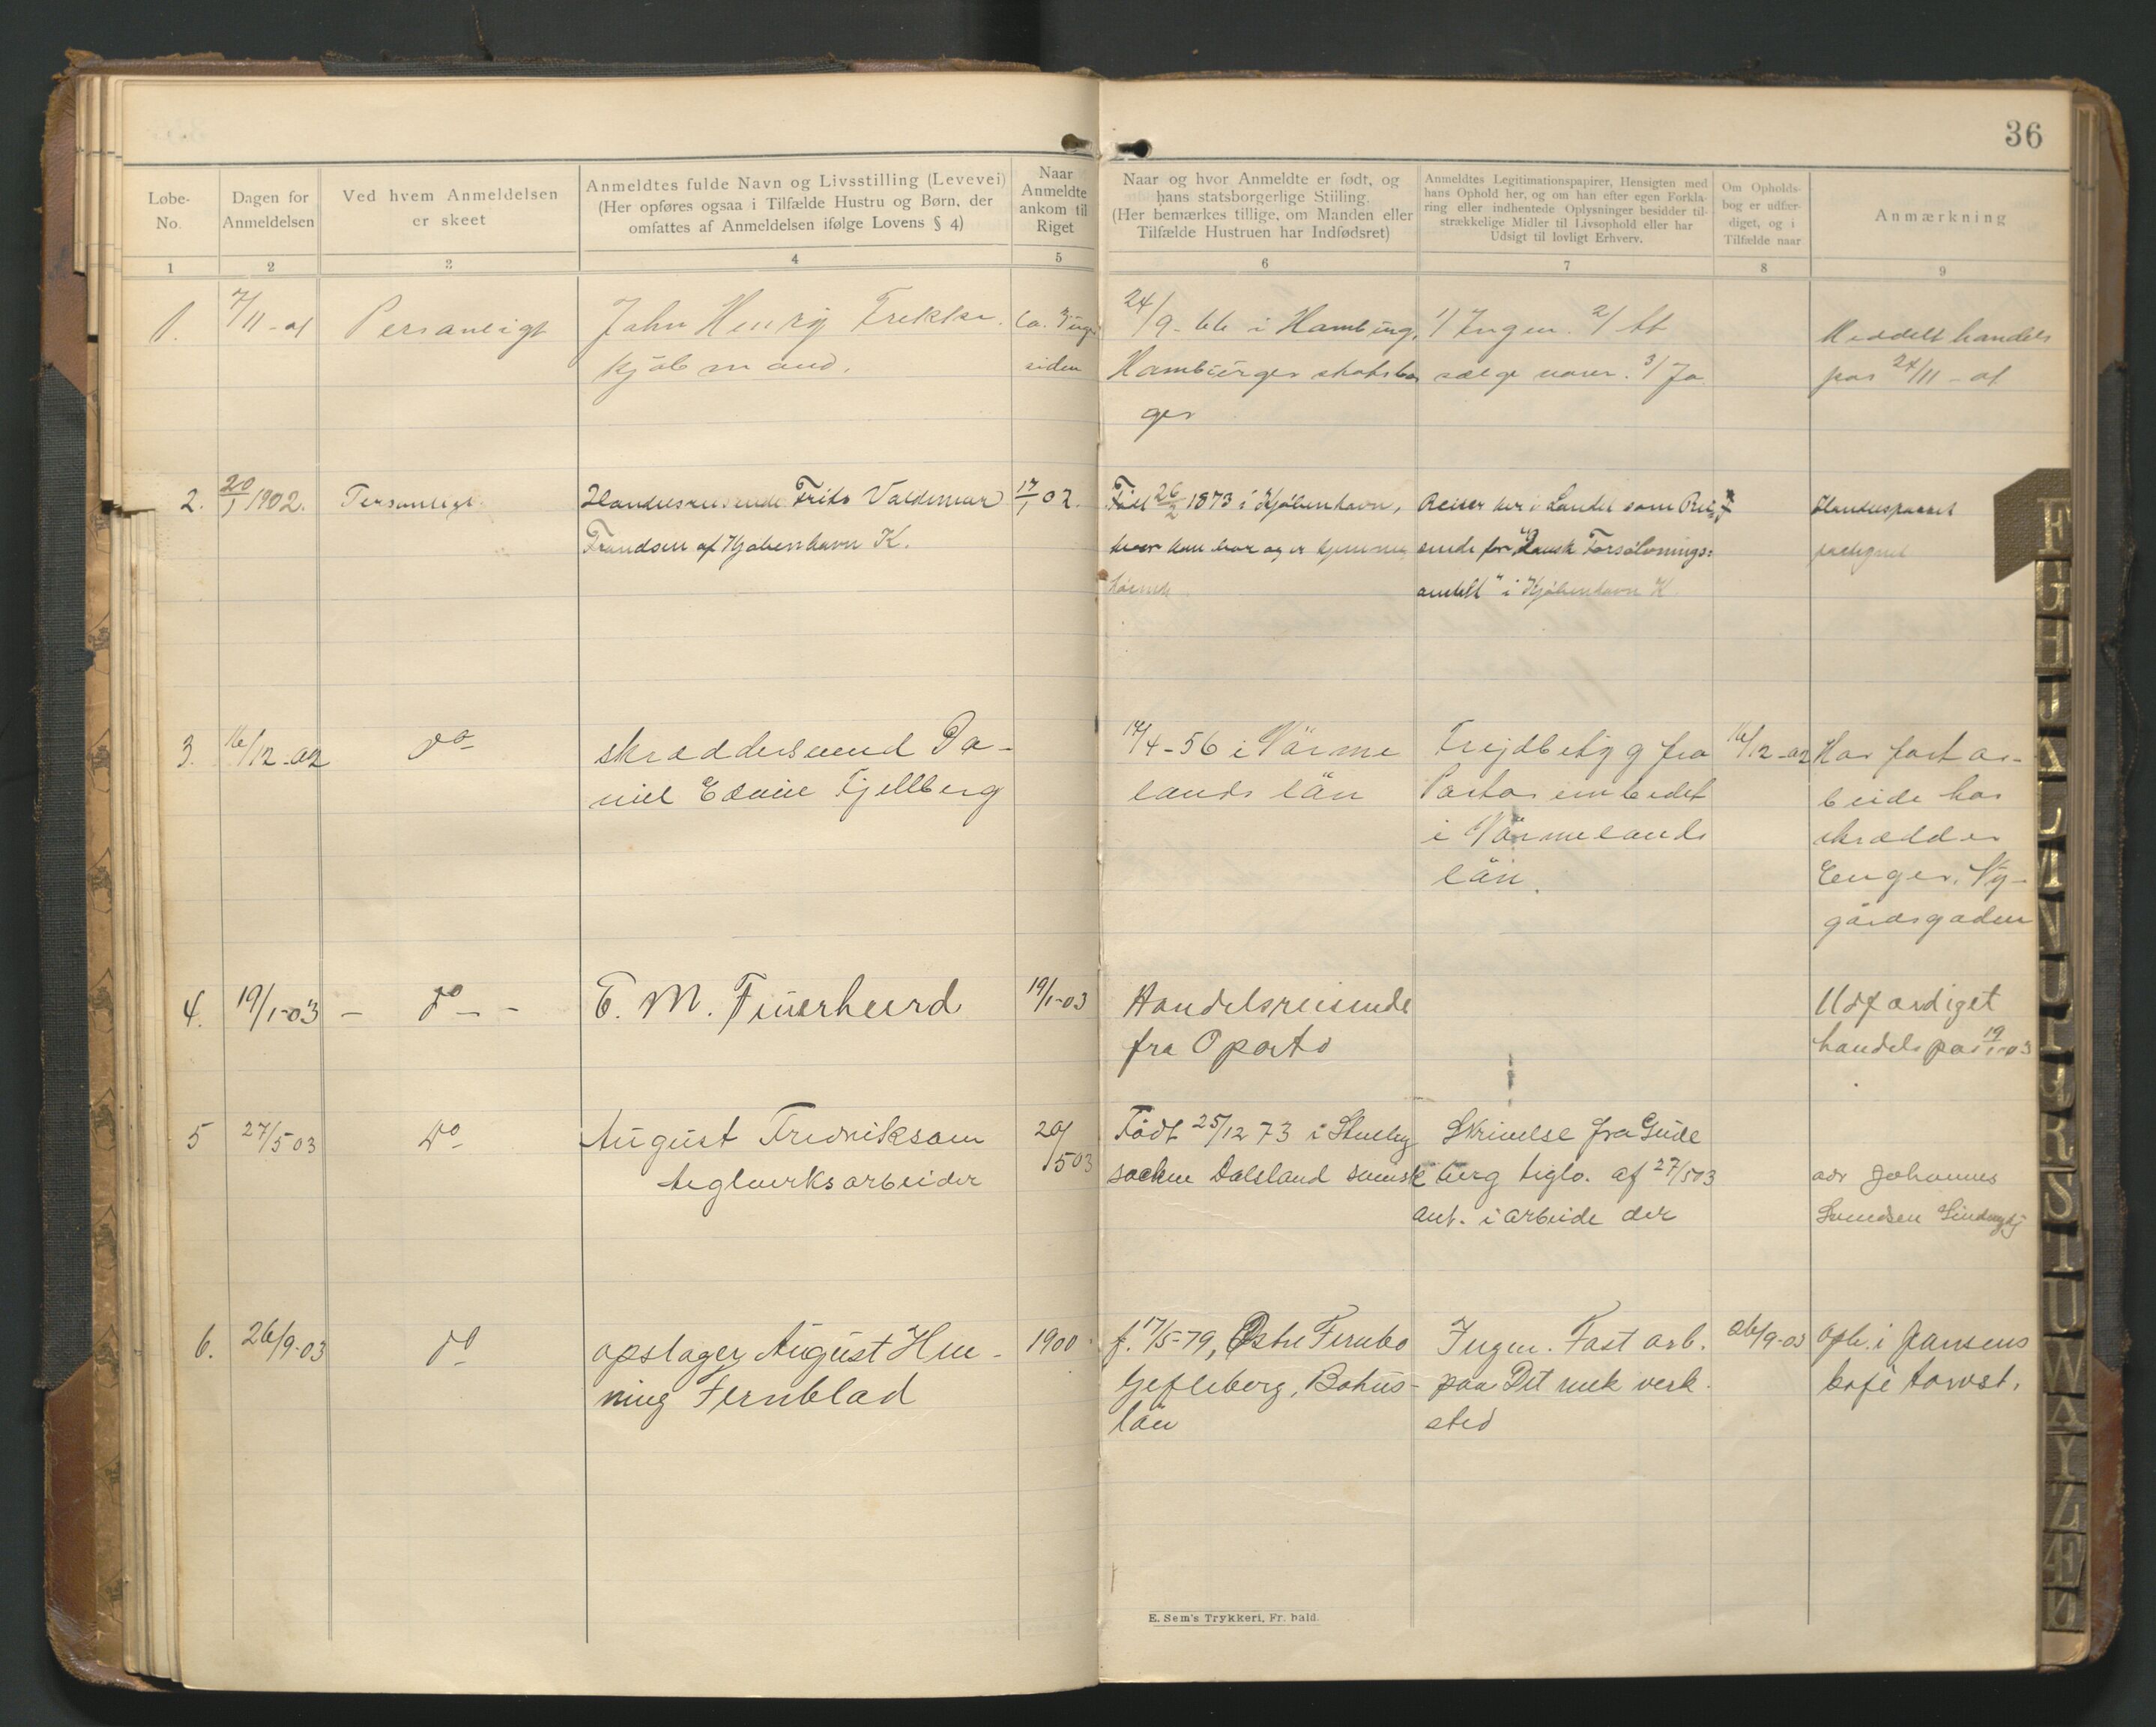 36
Løbe-
No.
Dagen for
Anmeldelsen
Ved hvem Anmeldelsen
er skeet
Anmeldtes fulde Navn og Livsstilling (Levevei)
(Her opføres ogsaa i Tilfælde Hustru og Børn, der
omfattes af Anmeldelsen ifølge Lovens § 4)
Naar
Anmeldte
ankom til
Riget
Naar og hvor Anmeldte er født, og
hans statsborgerlige Stiiling.
(Her bemærkes tillige, om Manden eller
Tilfælde Hustruen har Indfødsret)
Anmeldtes Legitimationspapirer, Hensigten med
hans Ophold her, og om han efter egen Forkla-
ring eller indhentede Oplysninger besidder til-
strækkelige Midler til Livsophold eller har
Udsigt til lovligt Erhverv.
Om Opholds-
bog er udfær-
diget, og i
Tilfælde naar
Anmærkning
1 2 3 4 5 6 7 8 9
1.
7/11-01
Personligt
John Henry Frekke.
Kjøbmand.
siden
24/9-66 i Hamburg.
Hamburger statsbor
ger
1/ Ingen. 2/ At
sælge varer. 3/ Ja
Meddelt handels
pas 24/11-01
2.
20/1 1902.
Personligt.
Handelsreisende Frits Valdemar
Frandsen af Kjøbenhavn K.
17/1 02.
Født 26/2 1873 i Kjøbenhavn,
hvor han bor og er hjemme
hørende
Reiser her i Landet som Rei-
sende for "Dansk Forsølvnings-
anstalt" i Kjøbenhavn K
Handelspasset
paategnet
3.
16/12-02
do
skræddersvend Da-
niel Edvin Fjellberg
14/4-56 i Värme
lands län
Frejdbetyg fra
Pastorembedet
i Värmelands
län.
16/12-02
Har fast ar-
beide hos
skrædder
Enger, Ny-
gårdsgaden
4.
19/1-03
- do - -
E. M. Feuerheerd
19/1-03
Handelsreisende
fra Oporto
Udfærdiget
handelspas 19/1-03
5
27/5 03
do
August Fredriksson
teglverksarbeider
20/5 03
Født 25/12 73 i
socken Dalsland svensk
Skrivelse fra Gude
berg teglv. af 27/5 03
ant. i arbeide der
adr Johannes
Svendsen
6.
26/9-03
do
opslager August Hen-
ning Fernblad
1900
f. 17/5-79, Østre
Gefleberg, Bohus-
län
Ingen. Fast arb.
paa Det mek verk.
sted
26/9-03
oph. i Jansens
kafé torvst.
E. Sem's Trykkeri, Fr. hald.
F
G
H
J
K
L
M
N
O
P
Q
R
S
T
U
W
A
Y
Z
Æ
Ø